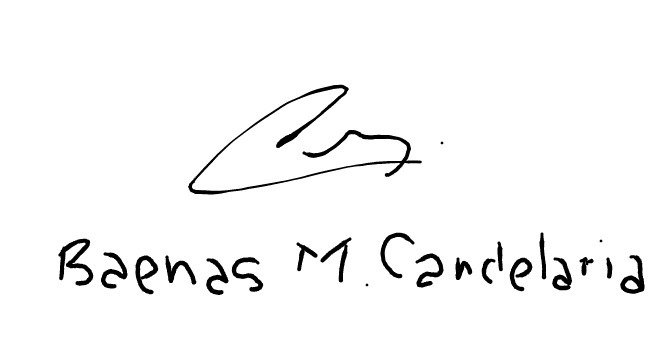 Baenas M. Candelaria